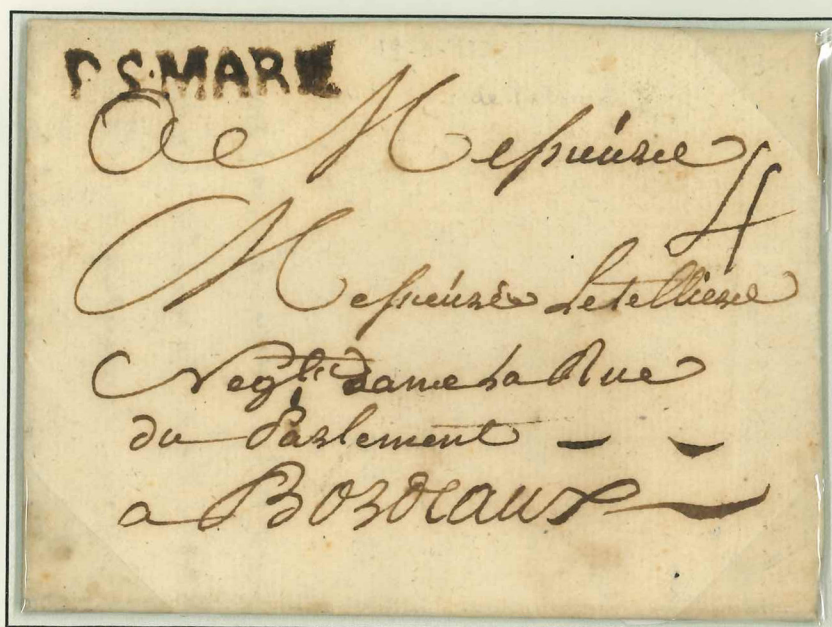 S.MARI
A Messieurs
4
Messieurs Letelliers
Neg.ts dans La Rue
du Parlement
a BORDEAUX